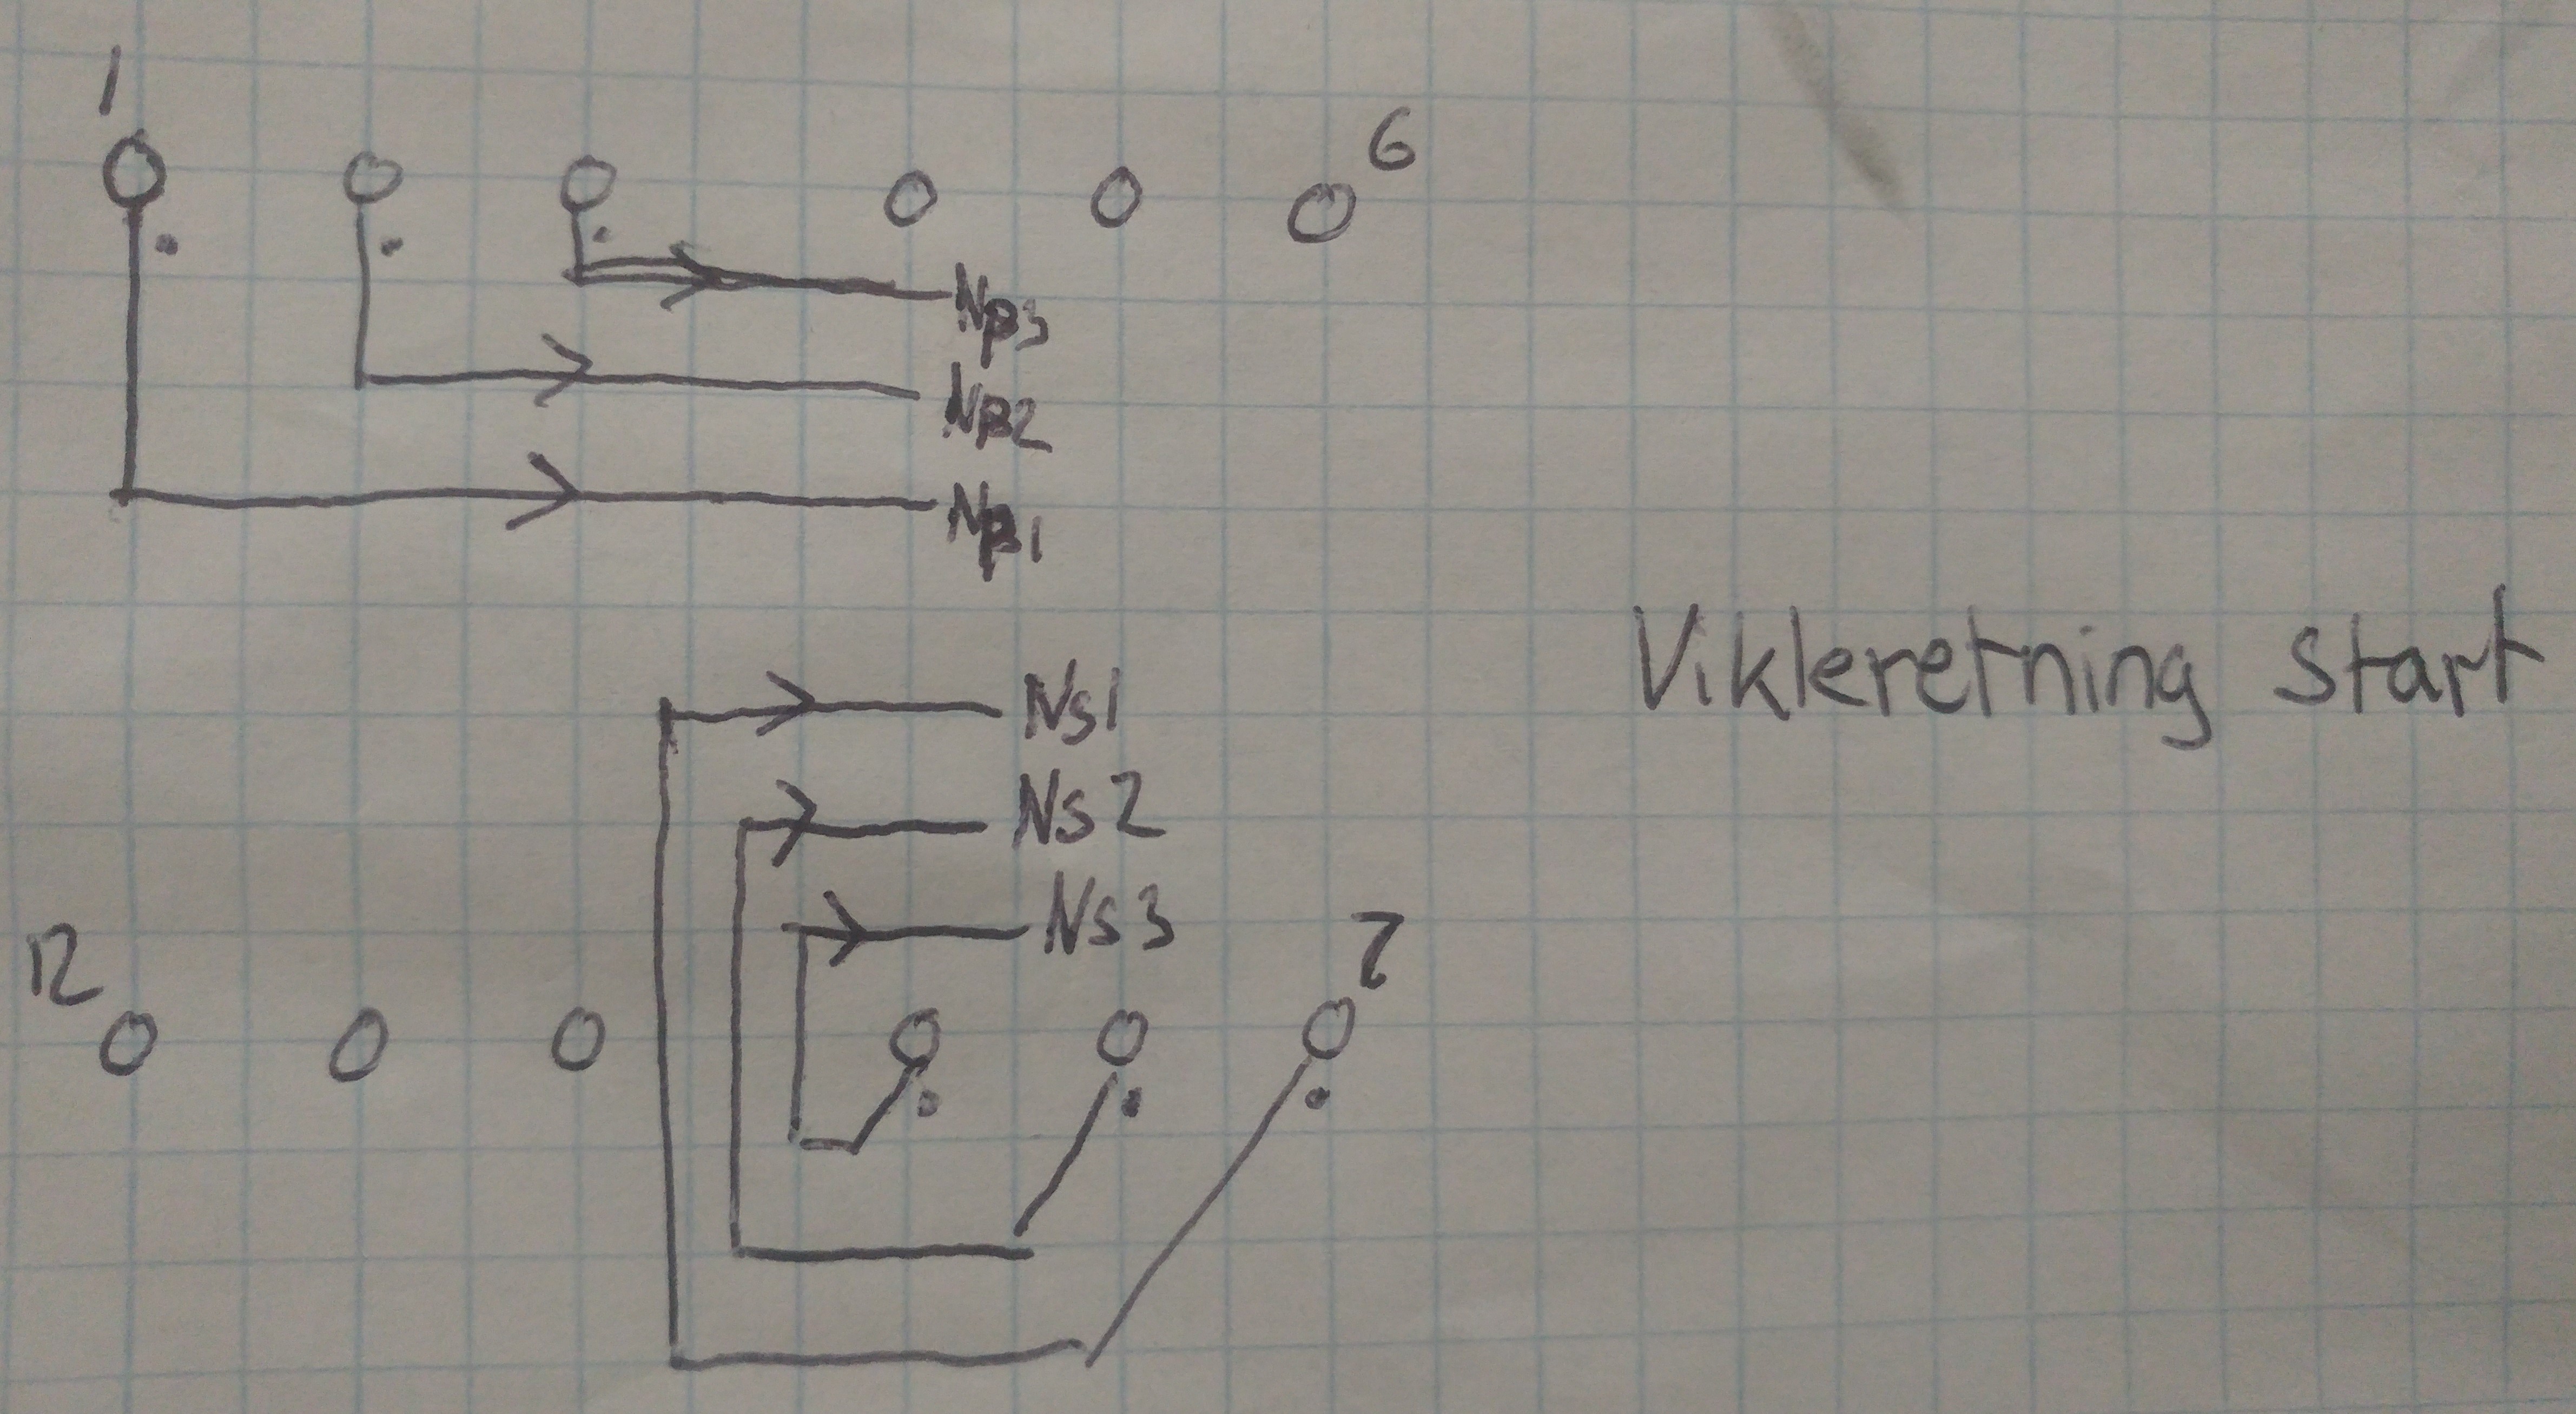 1
6
Np3
Np2
Np1
Vikleretning start
Ns1
Ns2
Ns3
12
7